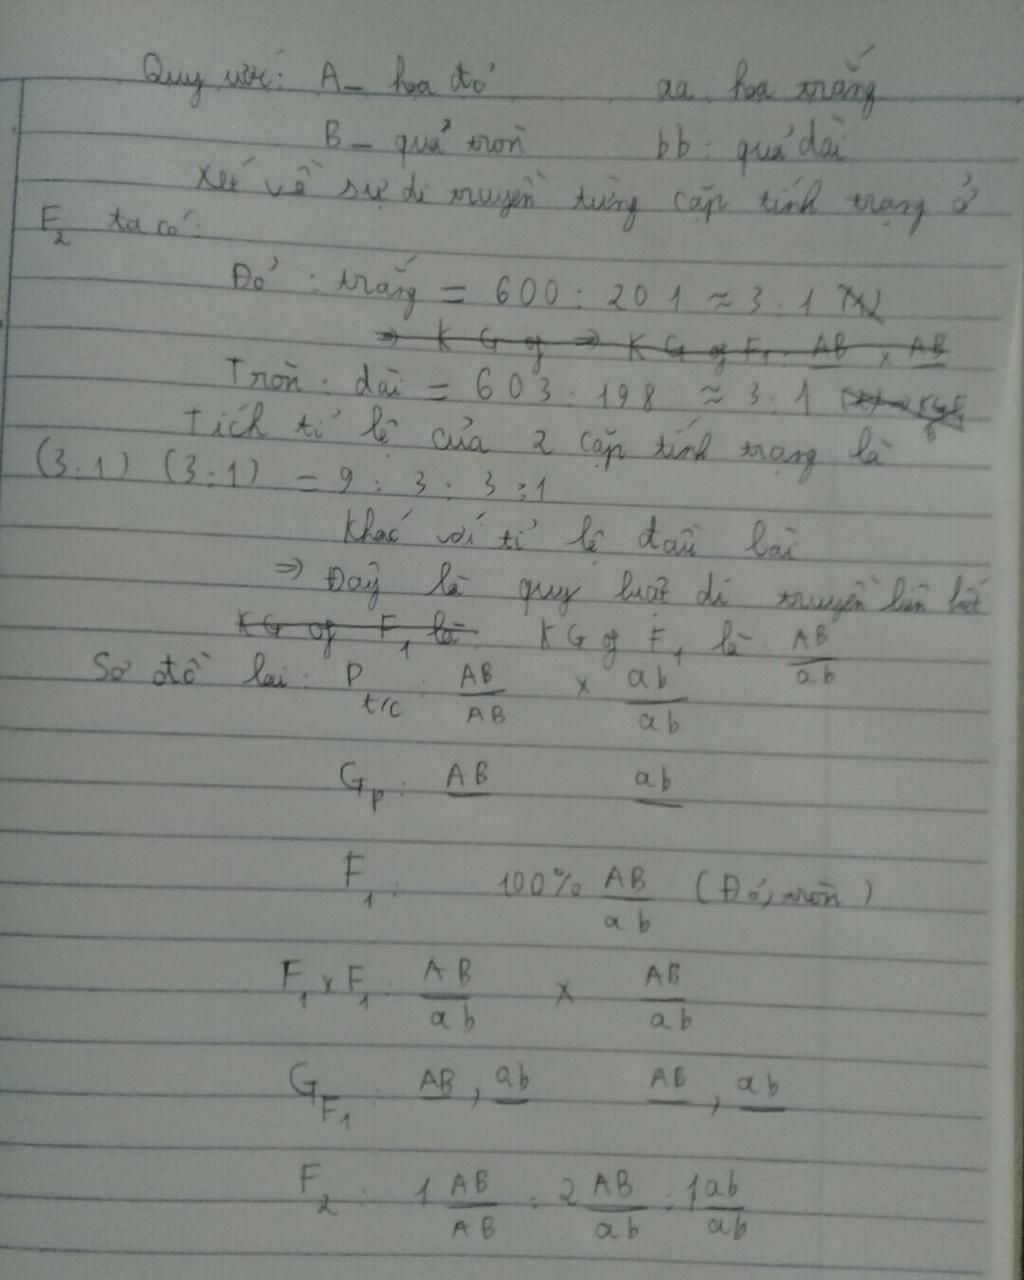 Quy ước: A_ hoa đỏ aa hoa trắng
B_ quả tròn bb: quả dài
Xét về sự di truyền từng cặp tính trạng ở
F2 ta có:
Đỏ : trắng = 600 : 201 ≈ 3:1
⇒ KG of ⇒ KG of F1: AB x AB
Tròn : dài = 603 : 198 ≈ 3:1
Tích tỉ lệ của 2 cặp tính trạng là
(3:1) (3:1) = 9 : 3 : 3 : 1
Khác với tỉ lệ đầu bài
⇒ Đây là quy luật di truyền liên kết
KG of F1 là KG of F1 là: AB/ab
Sơ đồ lai: P t/c : AB/AB x ab/ab
Gp: AB ab
F1: 100% AB/ab (Đỏ, tròn)
F1 x F1: AB/ab x AB/ab
GF1: AB, ab AB, ab
F2: 1 AB/AB : 2 AB/ab : 1 ab/ab